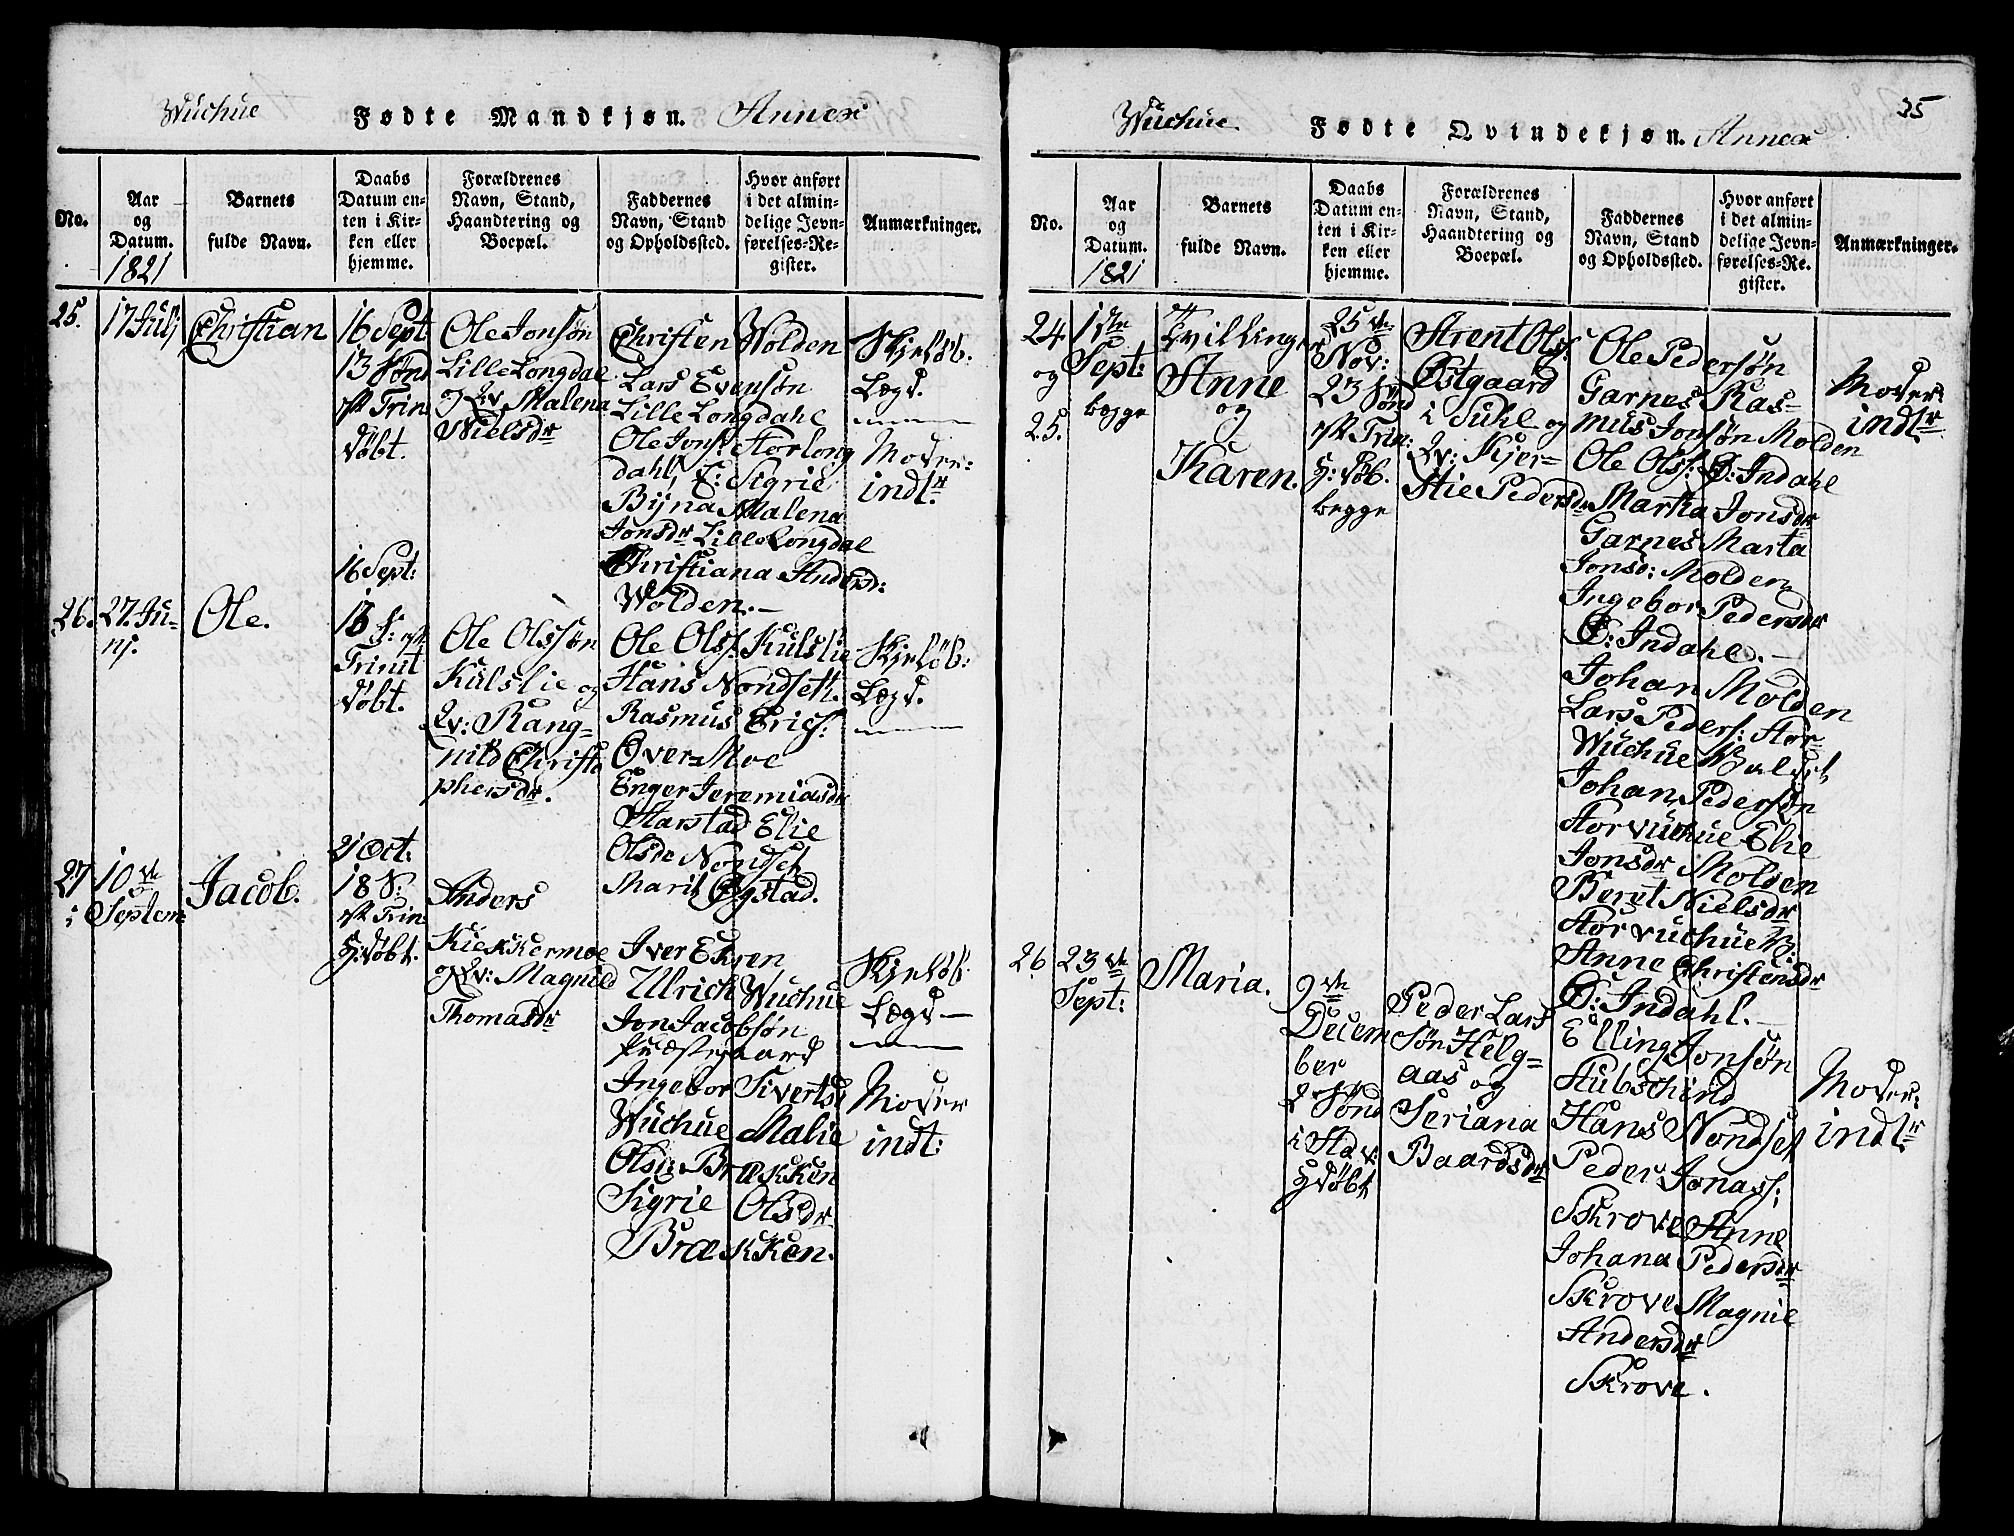 Wuchue Fødte Mandkjøn. Annex
No.
Aar
og
Datum.
1821
Barnets
fulde Navn.
Daabs
Datum en-
ten i Kir-
ken eller
hjemme.
Forældrenes
Navn, Stand,
Haandtering og
Boepæl.
Faddernes
Navn, Stand
og Opholdssted.
Hvor anført
i det almin-
delige Jevn-
førelses-Re-
gister.
Anmærkninger.
25.
17 Julj
Christian
16 Sept
13 Sønd
Trin.
døbt.
Ole Jonsøn
Lille Longdal
og Qv Malena
Nielsdr
Christen Wolden
Lars Evensøn
Lille Longdahl
Ole Jons: Storlong
dahl, E: Sigrie
Byna Malena
Jonsdr Lille Longdal
Christiana Andersd:
Wolden.-
Lægd.
Moder
indt.
26.
27. Ju-
nj.
Ole.
16 Sept:
13 S:
Trinit
døbt.
Ole Olssøn
Kulslie og
Qv: Rang-
nild Christo
phersdr.
Ole Olss: Kulslie
Hans Nondseth.
Rasmus Erics:
Over=Moe
Enger Jeremiasdr
Harstad Elie
Olsdr Nondset
Marit Øgstad.
Lægd.
27
10
Septem
Jacob.
21 Oct:
18 S:
Trin.
døbt.
Anders
Kiekkermoe
og Qv: Magnild
Thomasdr
Iver Ekren
Ulrich Wuchue
Jon Jacobsøn
Præstegaard
Ingebor Sivertsd
Wuchue Malie
Olsdr Brækken
Sigrie Olsdr
Brækken.
Lægd-
Moder
indt:
Wuchue. Fødte Qvindekjøn. Annex
35
No.
Aar
og
Datum.
1821
Barnets
fulde Navn.
Daabs
Datum en-
ten i Kir-
ken eller
hjemme.
Forældrenes
Navn, Stand,
Haandtering og
Boepæl.
Faddernes
Navn, Stand
og Opholdssted.
Hvor anført
i det almin-
delige Jevn-
førelses-Re-
gister.
Anmærkninger.
24
og
25.
Sept:
begge
Tvillinger
Anne
og
Karen.
25
Nov:
23 Sønd
Trin:
begge
Arent Ols:
Østgaard
i Suhl og
Qv: Kjer-
stie Pedersdr
Ole Pedersøn
Garnes Ras-
mus Jonsøn Molden
Ole Ols: Ø: Indahl
Martha Jonsdr
Garnes Marta
Jonsd: Molden
Ingebor Pedersdr
Ø: Indahl.-
Johan Molden
Lars Peders: Stor
Wuchue
Johan Pedersøn
Storvuchue Elie
Jonsdr Molden
Beret Nielsdr
Storvuchue
Anne Christensdr
Ø: Indahl.-
Moder
indtr
26
23
Sept:
Maria.
9
Decem
ber
2 Sønd
i Adv:
døbt
Peder Lars
søn Helg=
aas og
Seriana
Baardsdr
Elling Jonsøn
Stubschind
Hans Nondset
Peder Jonass:
Skrove Anne
Johana Pedersdr
Skrove Magnil
Andersdr
Skrove.
Moder
indtr